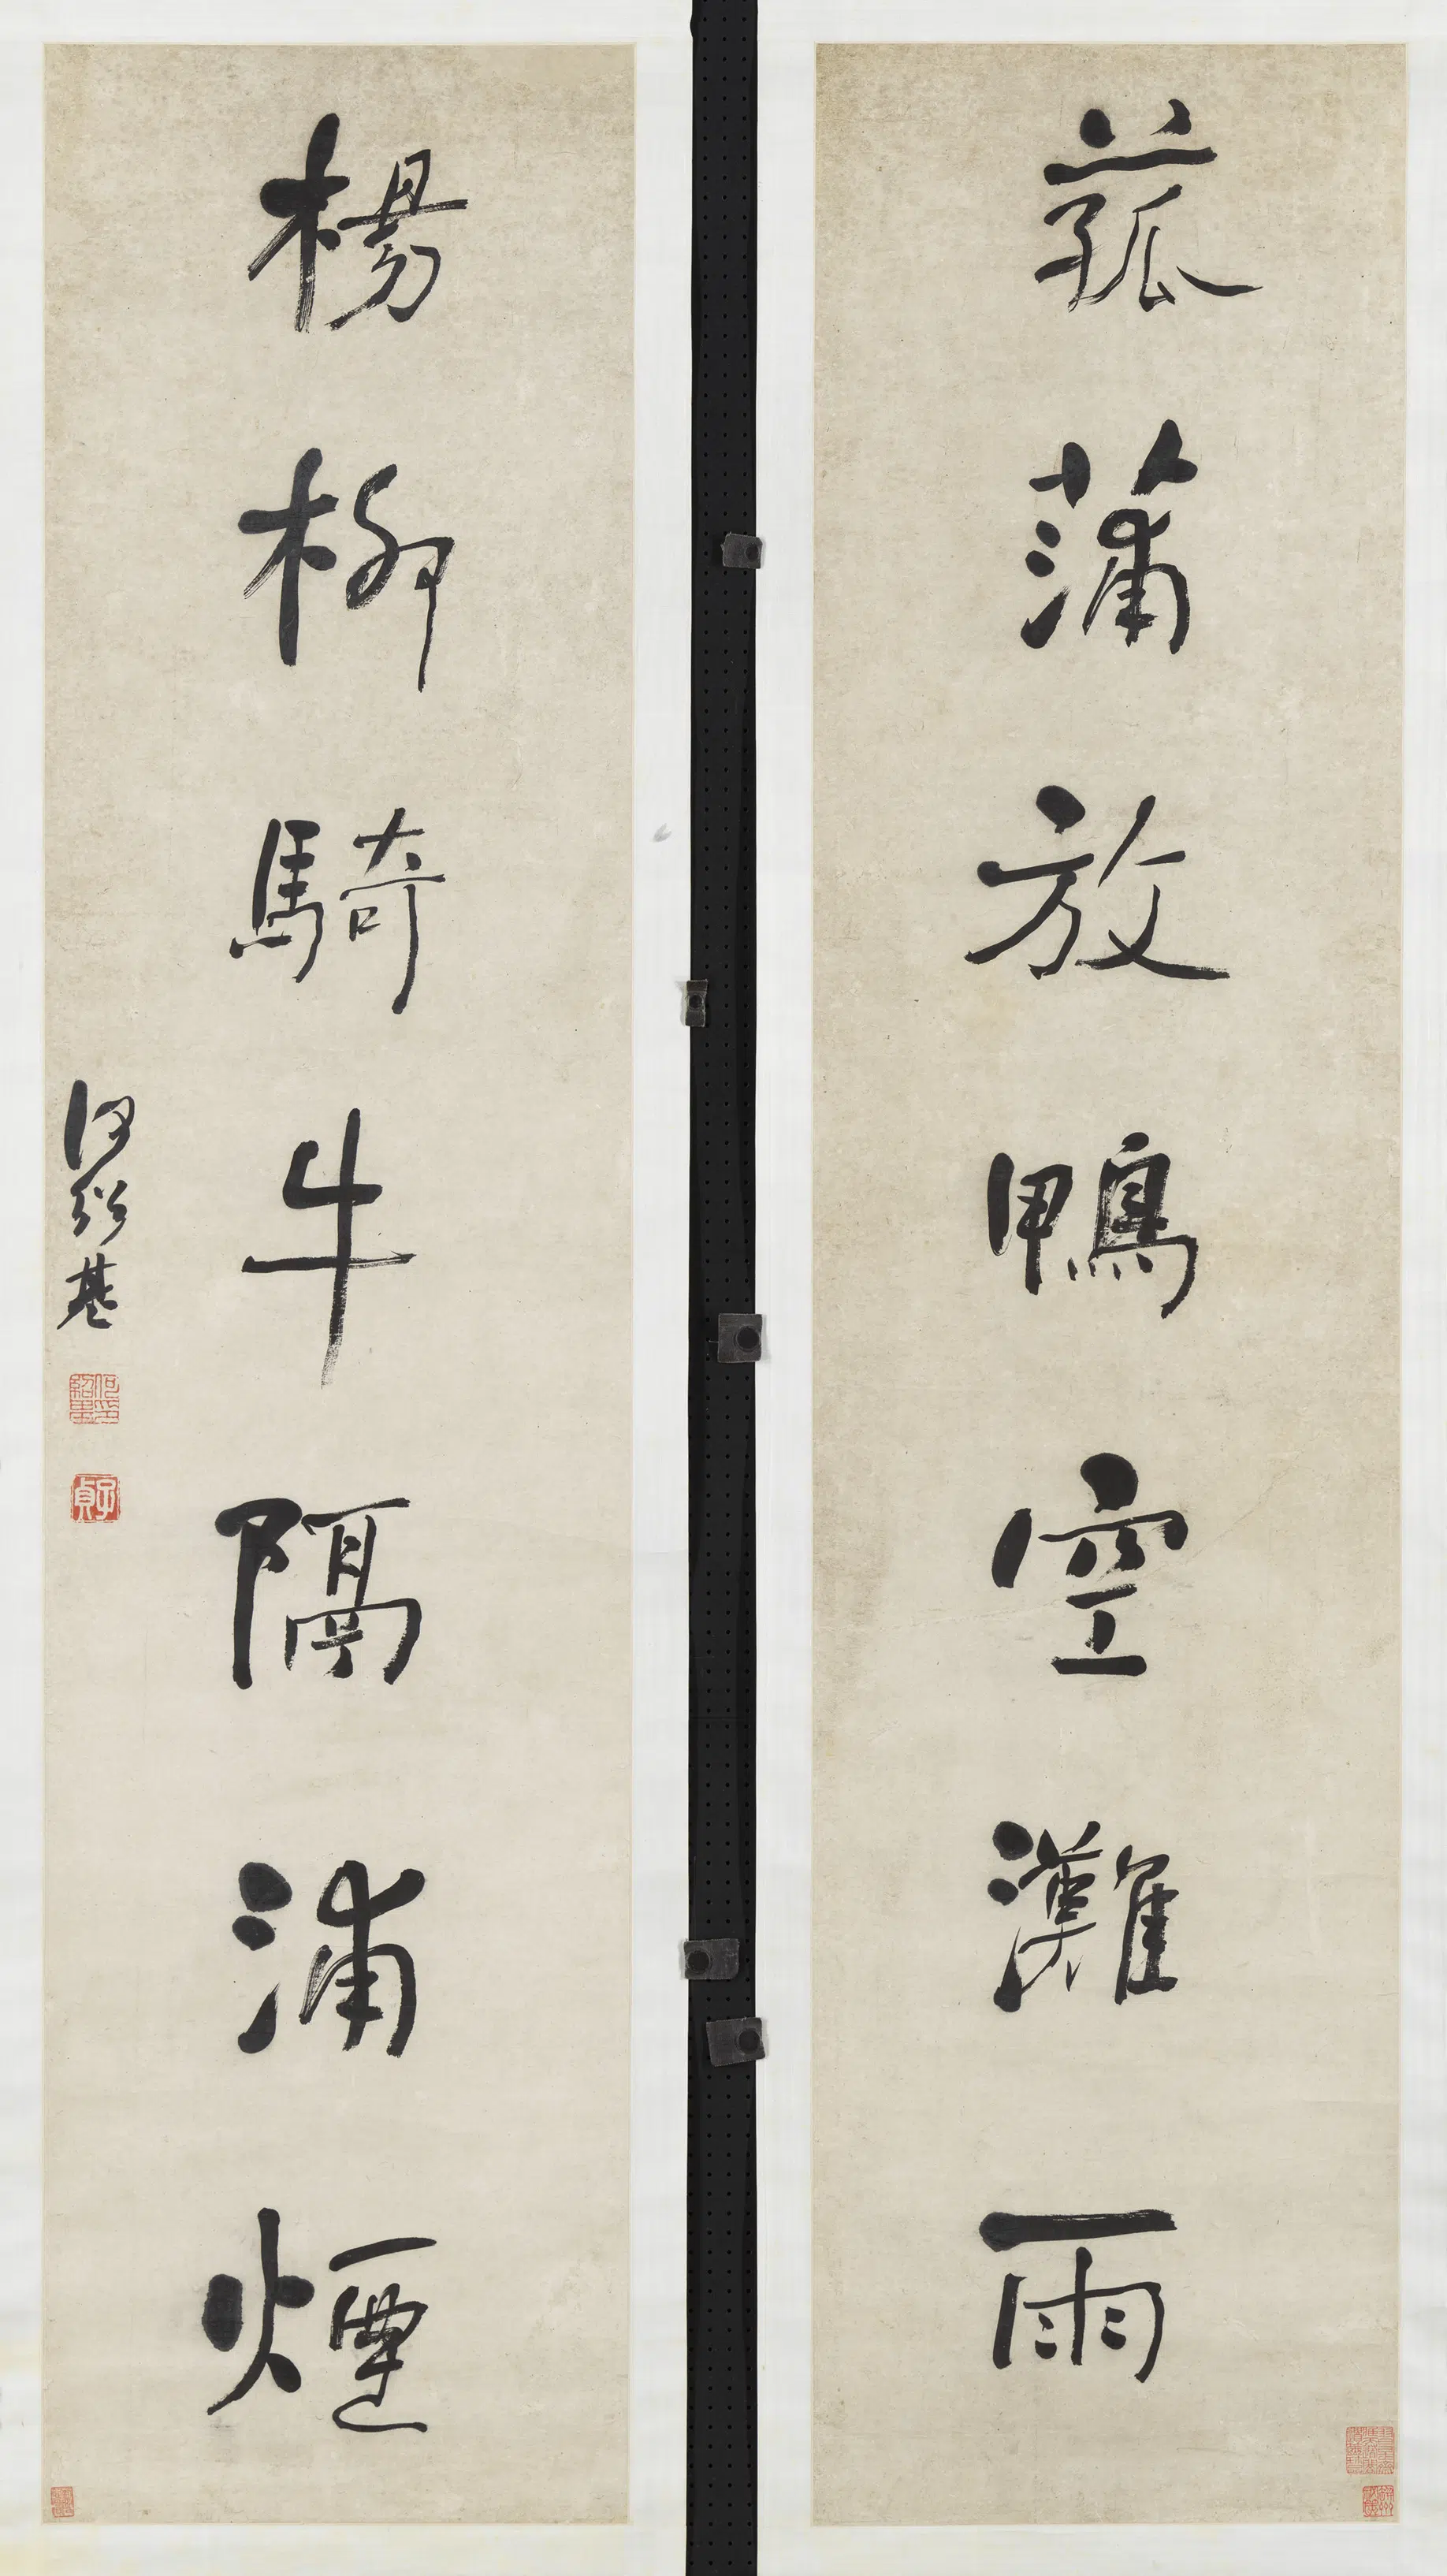 菰蒲放鴨空灘雨
楊柳騎牛隔浦煙
何紹基
何紹基印
子貞